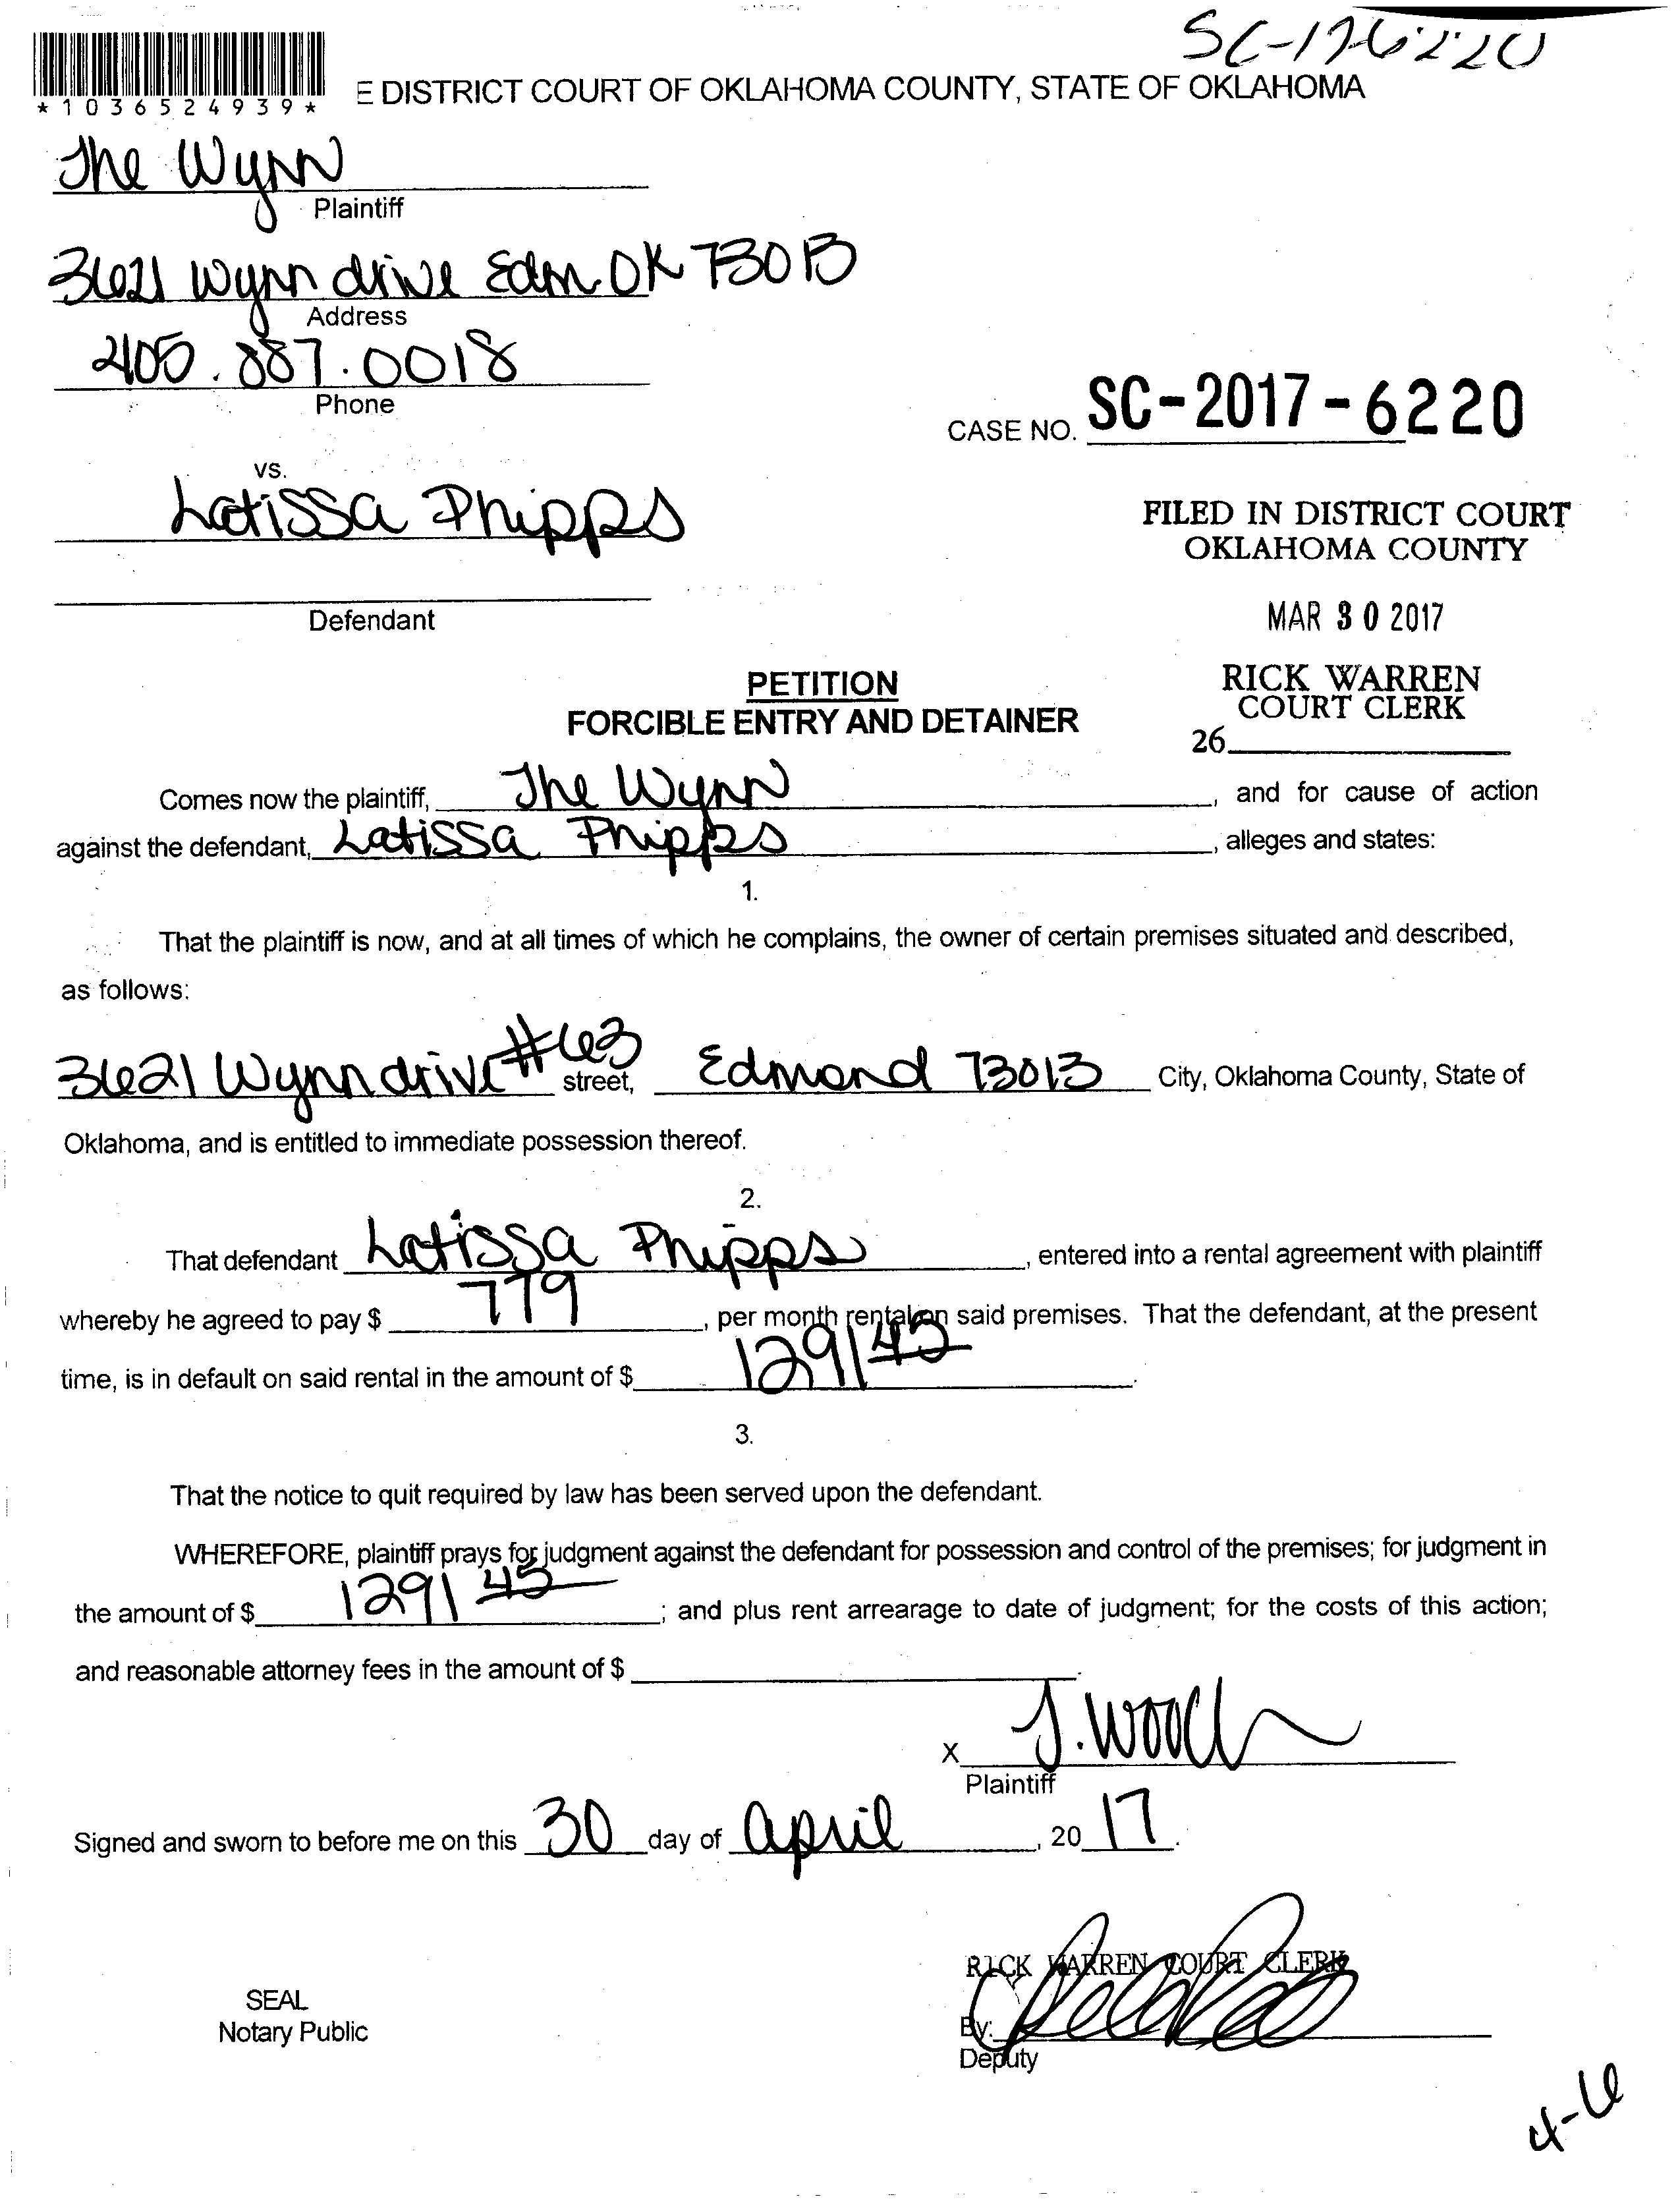 SC-17-6220
*1036524939*
E DISTRICT COURT OF OKLAHOMA COUNTY, STATE OF OKLAHOMA
The Wynn
Plaintiff
3621 Wynn drive Edm. OK 73013
Address
405.887.0018
Phone
CASE NO. SC-2017-6220
vs.
Latissa Phipps
FILED IN DISTRICT COURT
OKLAHOMA COUNTY
Defendant
MAR 30 2017
PETITION
FORCIBLE ENTRY AND DETAINER
RICK WARREN
COURT CLERK
26
Comes now the plaintiff, The Wynn, and for cause of action
against the defendant, Latissa Phipps, alleges and states:
1.
That the plaintiff is now, and at all times of which he complains, the owner of certain premises situated and described,
as follows:
3621 Wynn drive #63 street, Edmond 73013 City, Oklahoma County, State of
Oklahoma, and is entitled to immediate possession thereof.
2.
That defendant Latissa Phipps, entered into a rental agreement with plaintiff
whereby he agreed to pay $ 779, per month rental on said premises. That the defendant, at the present
time, is in default on said rental in the amount of $ 1291 45.
3.
That the notice to quit required by law has been served upon the defendant.
WHEREFORE, plaintiff prays for judgment against the defendant for possession and control of the premises; for judgment in
the amount of $ 1291 45; and plus rent arrearage to date of judgment; for the costs of this action;
and reasonable attorney fees in the amount of $
X J. Wood
Plaintiff
Signed and sworn to before me on this 30 day of april, 20 17.
RICK WARREN COURT CLERK
SEAL
Notary Public
By:
Deputy
4-6